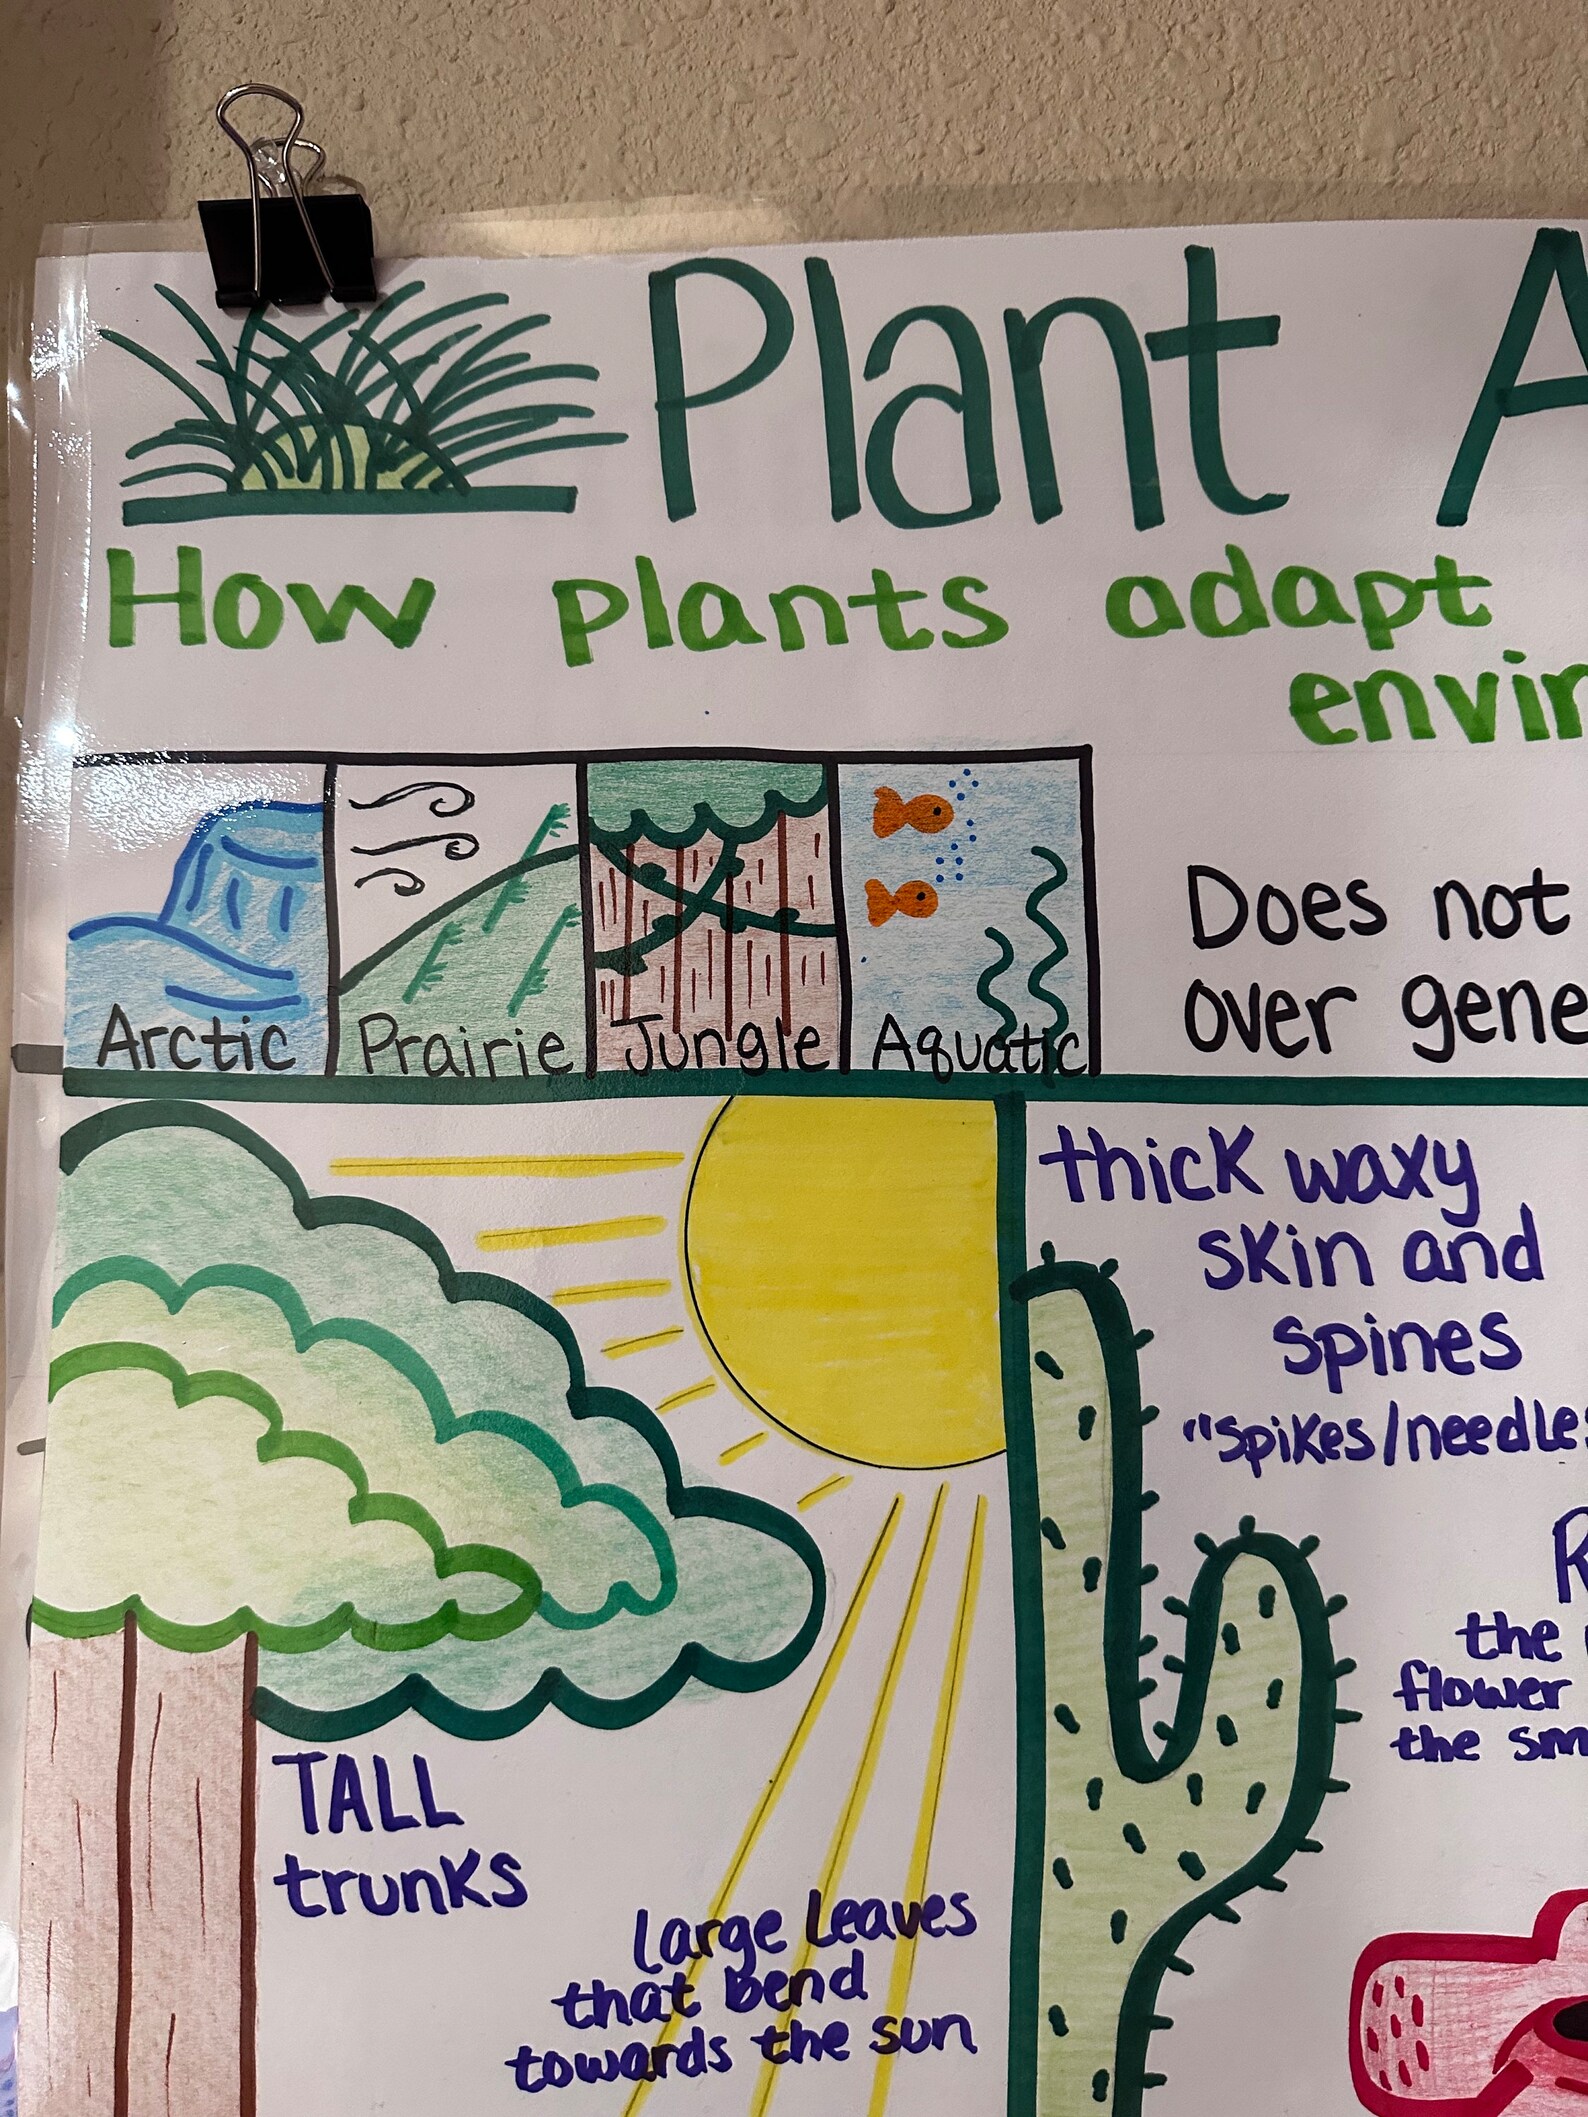 Plant A
How plants adapt
envir
Does not
over gene
Arctic Prairie Jungle Aquatic
thick waxy
skin and
spines
"spikes/needles
R
the
flower
the sm
TALL
trunks
large leaves
that bend
towards the sun